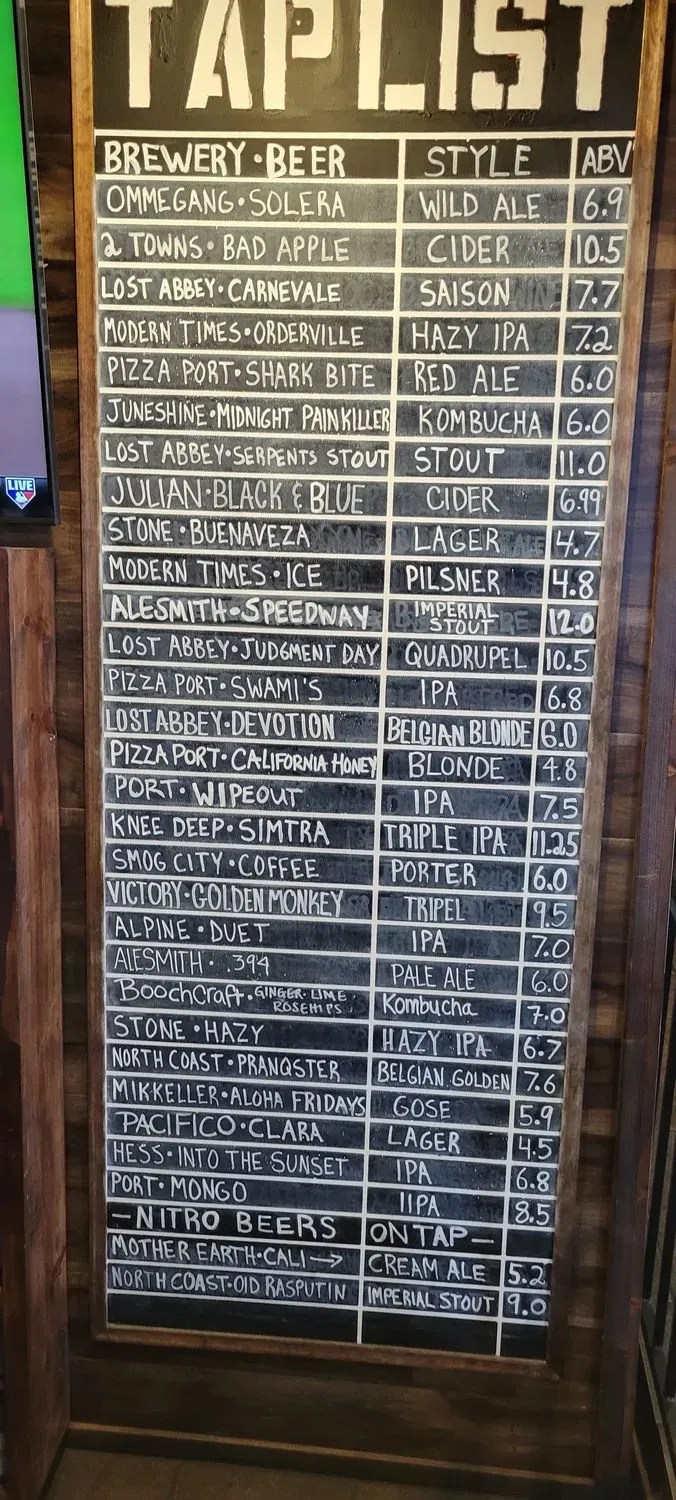 TAP LIST
BREWERY • BEER STYLE ABV
OMMEGANG • SOLERA WILD ALE 6.9
2 TOWNS • BAD APPLE CIDER 10.5
LOST ABBEY • CARNEVALE SAISON 7.7
MODERN TIMES • ORDERVILLE HAZY IPA 7.2
PIZZA PORT • SHARK BITE RED ALE 6.0
JUNESHINE • MIDNIGHT PAINKILLER KOMBUCHA 6.0
LOST ABBEY • SERPENTS STOUT STOUT 11.0
JULIAN • BLACK & BLUE CIDER 6.99
STONE • BUENAVEZA LAGER 4.7
MODERN TIMES • ICE PILSNER 4.8
ALESMITH • SPEEDWAY IMPERIAL STOUT 12.0
LOST ABBEY • JUDGMENT DAY QUADRUPEL 10.5
PIZZA PORT • SWAMI'S IPA 6.8
LOST ABBEY • DEVOTION BELGIAN BLONDE 6.0
PIZZA PORT • CALIFORNIA HONEY BLONDE 4.8
PORT • WIPEOUT IPA 7.5
KNEE DEEP • SIMTRA TRIPLE IPA 11.25
SMOG CITY • COFFEE PORTER 6.0
VICTORY • GOLDEN MONKEY TRIPEL 9.5
ALPINE • DUET IPA 7.0
ALESMITH • .394 PALE ALE 6.0
BOOCHCRAFT • GINGER • LIME ROSEHIPS Kombucha 7.0
STONE • HAZY HAZY IPA 6.7
NORTH COAST • PRANQSTER BELGIAN GOLDEN 7.6
MIKKELLER • ALOHA FRIDAYS GOSE 5.9
PACIFICO • CLARA LAGER 4.5
HESS • INTO THE SUNSET IPA 6.8
PORT • MONGO IIPA 8.5
— NITRO BEERS ON TAP —
MOTHER EARTH • CALI → CREAM ALE 5.2
NORTH COAST • OLD RASPUTIN IMPERIAL STOUT 9.0
LIVE